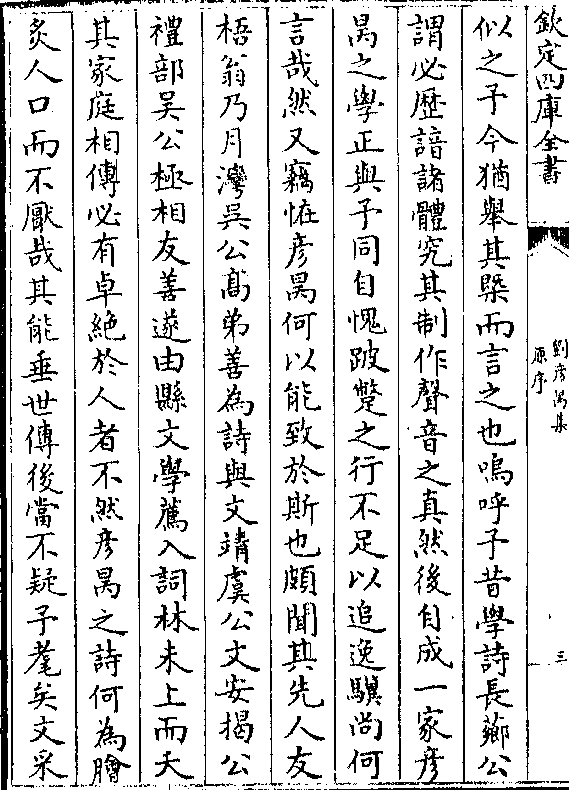 欽定四庫全書
劉彦昺集
原序
三
似之予今猶舉其槩而言之也嗚呼予昔學詩長薌公
謂必歴諳諸體究其制作聲音之真然後自成一家彦
昺之學正與予同自愧跛蹩之行不足以追逸驥尚何
言哉然又竊怪彦昺何以能致於斯也頗聞其先人友
梧翁乃月灣吳公髙弟善為詩與文靖虞公文安揭公
禮部吳公極相友善遂由縣文學薦入詞林未上而夭
其家庭相傳必有卓絶於人者不然彦昺之詩何為膾
炙人口而不厭哉其能垂世傳後當不疑予耄矣文采